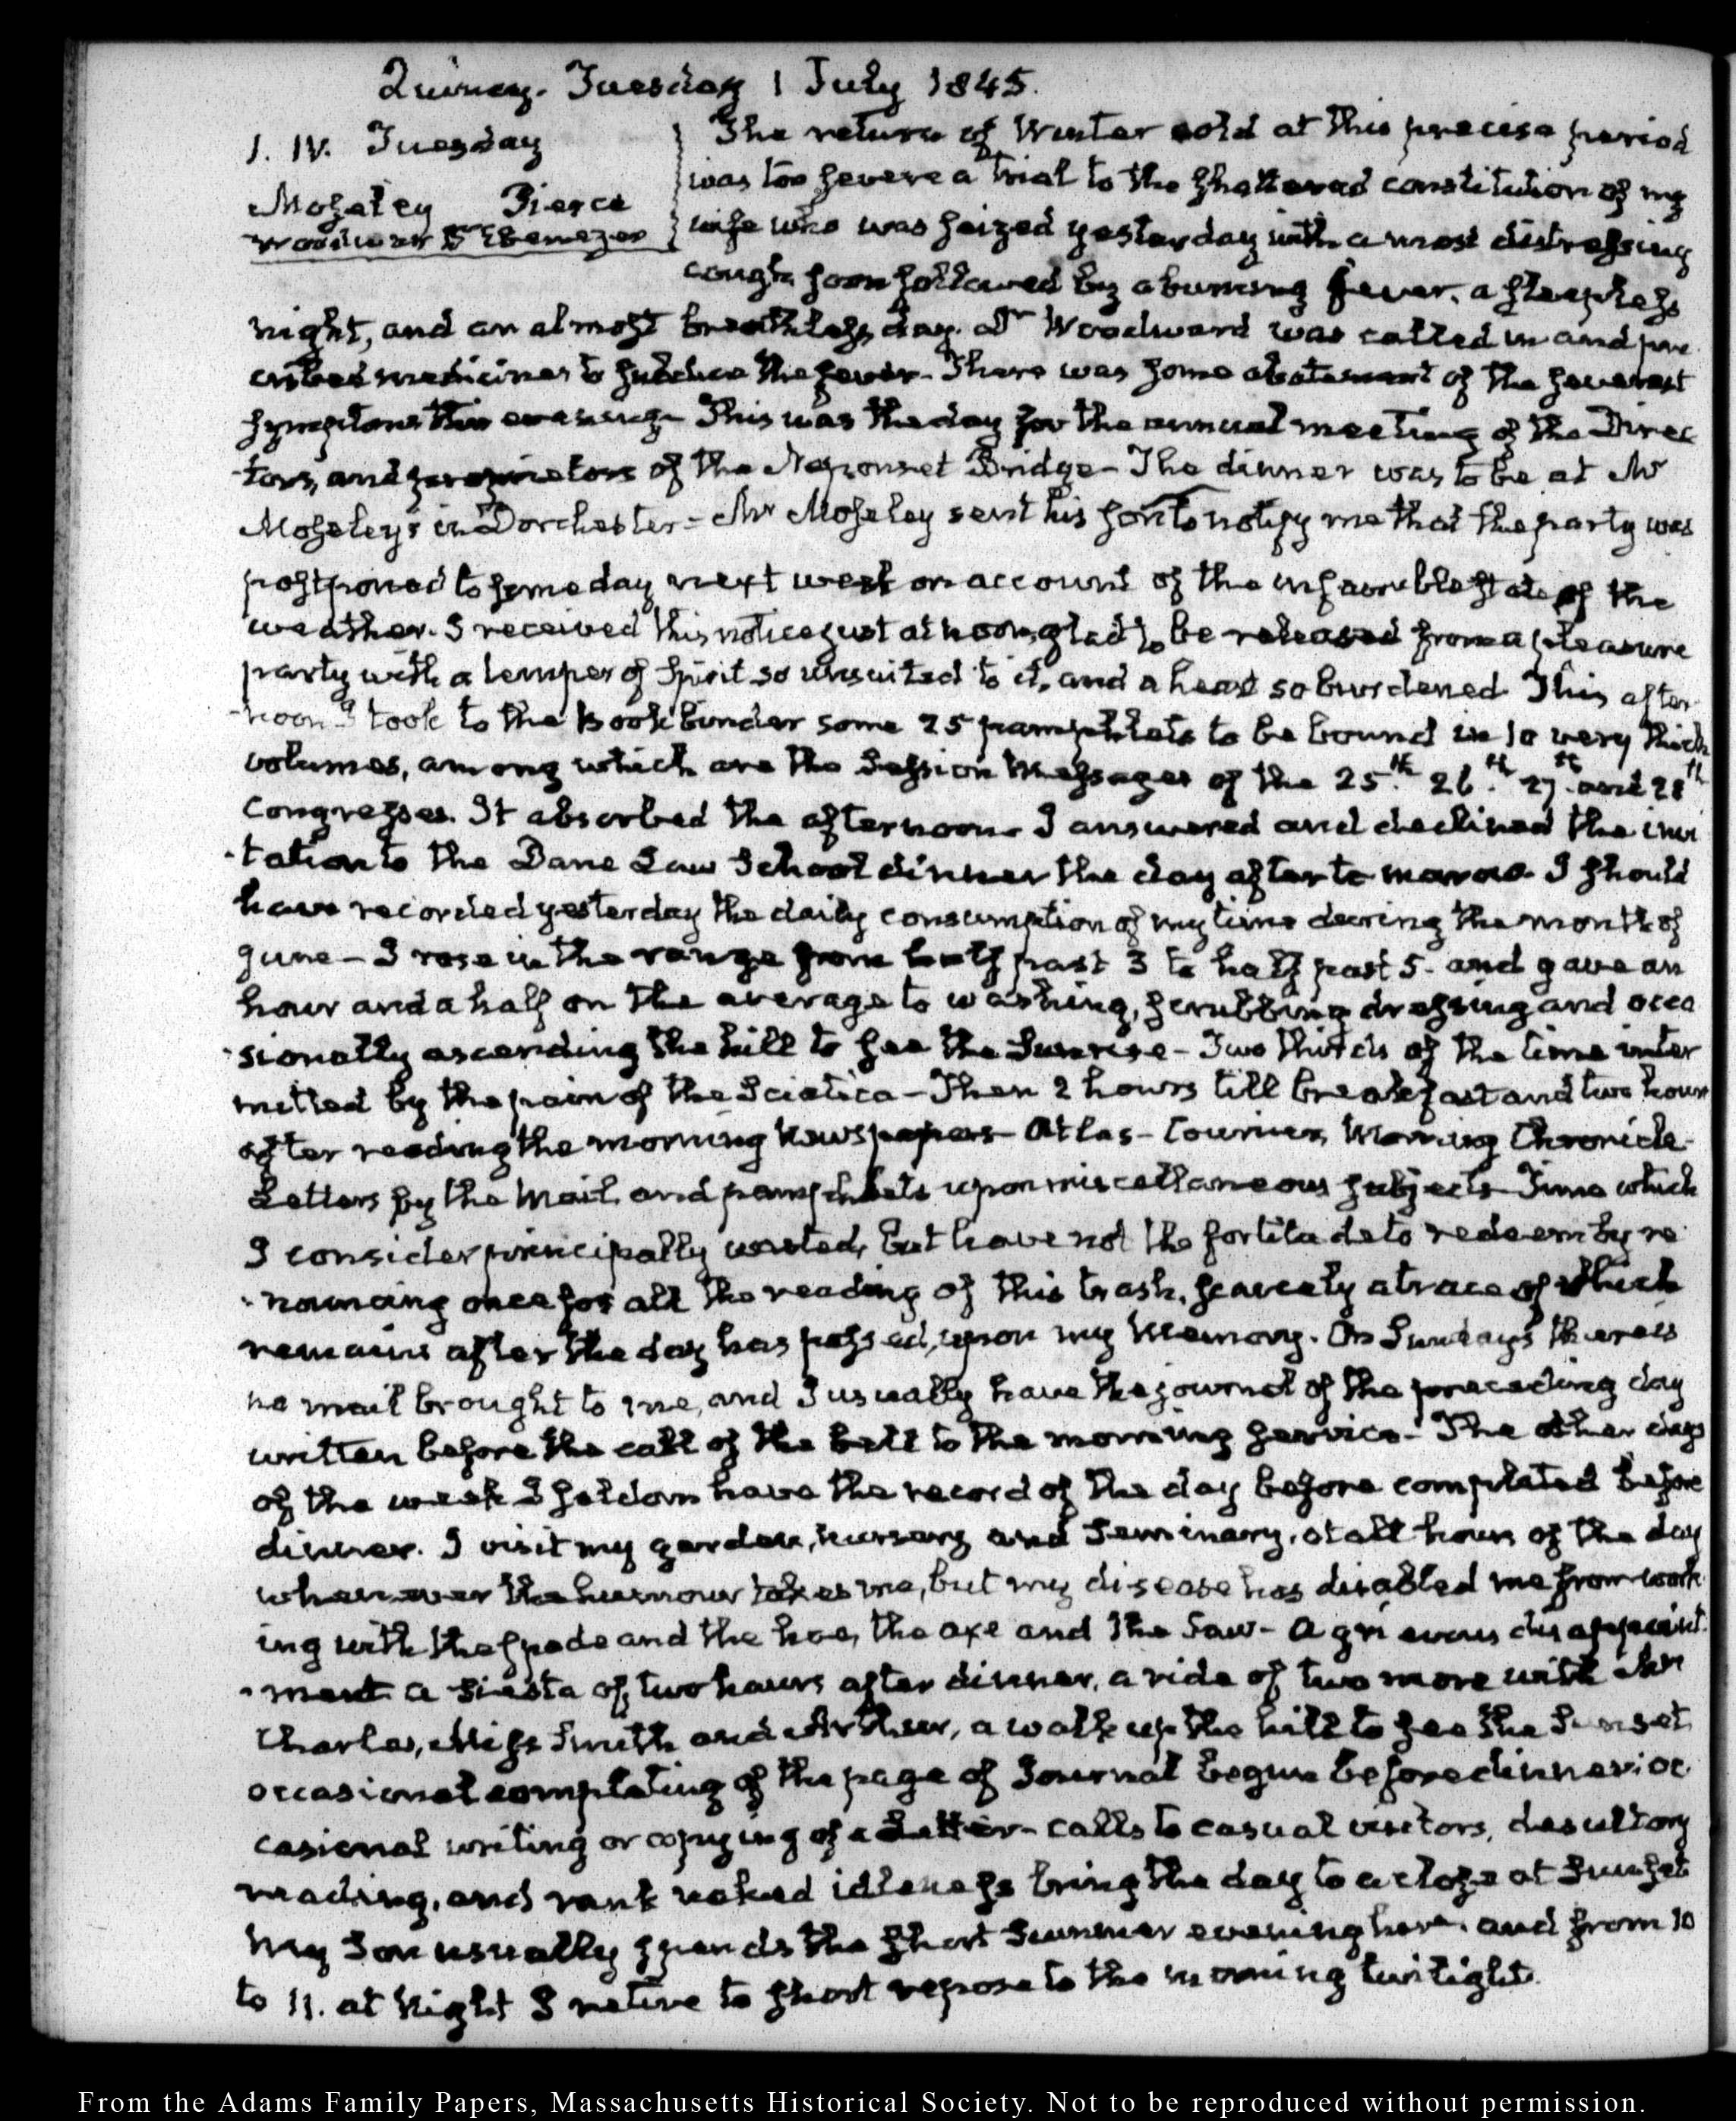 Quincy. Tuesday 1 July 1845.
1. IV. Tuesday
Moseley Pierce
Woodward Dr Ebenezer
The return of Winter cold at this precise period
was too severe a trial to the shattered constitution of my
wife who was seized yesterday with a most distressing
cough soon followed by a burning fever, a sleepless
night, and an almost breathless day. Dr Woodward was called in and pre
cribed medicines to subdue the fever- There was some abatement of the severest
symptoms this evening- This was the day for the annual meeting of the Direc
-tors, and proprietors of the Neponset Bridge- The dinner was to be at Mr
Moseley's in Dorchester- Mr Moseley sent his son to notify me that the party was
postponed to some day next week on account of the unfavorable state of the
weather. I received this notice just at noon, glad to be released from a pleasure
party with a temper of Spirit so unsuited to it, and a heart so burdened This after-
-noon I took to the bookbinder some 25 pamphlets to be bound in 10 very thick
volumes, among which are the Session Messages of the 25.th 26.th 27.th and 28th
Congresses. It absorbed the afternoon- I answered and declined the invi
-tation to the Dane Law School dinner the day after to-morrow- I should
have recorded yesterday the daily consumption of my time during the month of
June- I rose in the range from half past 3 to half past 5- and gave an
hour and a half on the average to washing, scrubbing dressing and occa
-sionally ascending the hill to see the Sunrise- Two thirds of the time inter
mitted by the pain of the Sciatica- Then 2 hours till breakfast and two hours
after reading the morning Newspapers- Atlas- Courier, Morning Chronicle-
Letters by the Mail and pamphlets upon miscellaneous subjects- Time which
I consider principally wasted, but have not the fortitude to redeem by re
-nouncing once for all the reading of this trash, scarcely a trace of which
remains after the day has passed, upon my Memory. On Sundays there is
no mail brought to me, and I usually have the journal of the preceding day
written before the call of the bell to the morning service- The other days
of the week I seldom have the record of the day before completed before
dinner. I visit my garden, nursery and Seminary, at all hours of the day
whenever the humour takes me, but my disease has disabled me from work-
ing with the spade and the hoe, the axe and the Saw- a grievous disappoint-
-ment a siesta of two hours after dinner, a ride of two more with Mrs
Charles, Miss Smith and Arthur, a walk up the hill to see the Sunset
occasional completing of the page of Journal begun before dinner oc
casional writing or copying of a Letter- calls to casual visitors, desultory
reading, and rank naked idleness bring the day to a close at Sunset
My Son usually spends the short Summer evening here. and from 10
to 11. at Night I retire to short repose to the morning twilight.
From the Adams Family Papers, Massachusetts Historical Society. Not to be reproduced without permission.